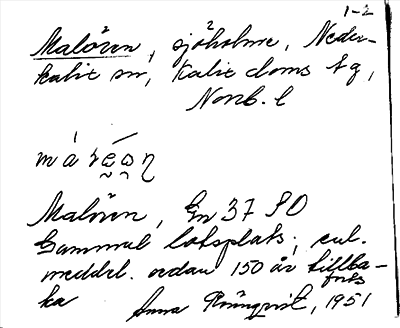 1-2
Malören, sjöholme, Neder-
kalix sn, Kalix doms tg,
Norrb. l
Malören, En 37 SO
Gammal lotsplats; enl.
meddel. sedan 150 år tillba-
ka
Anna Rönnqvist, 1951